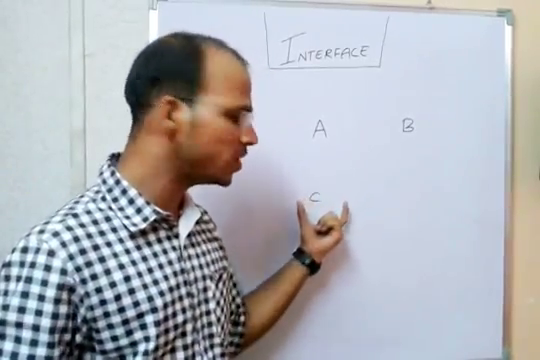 INTERFACE
A B
C